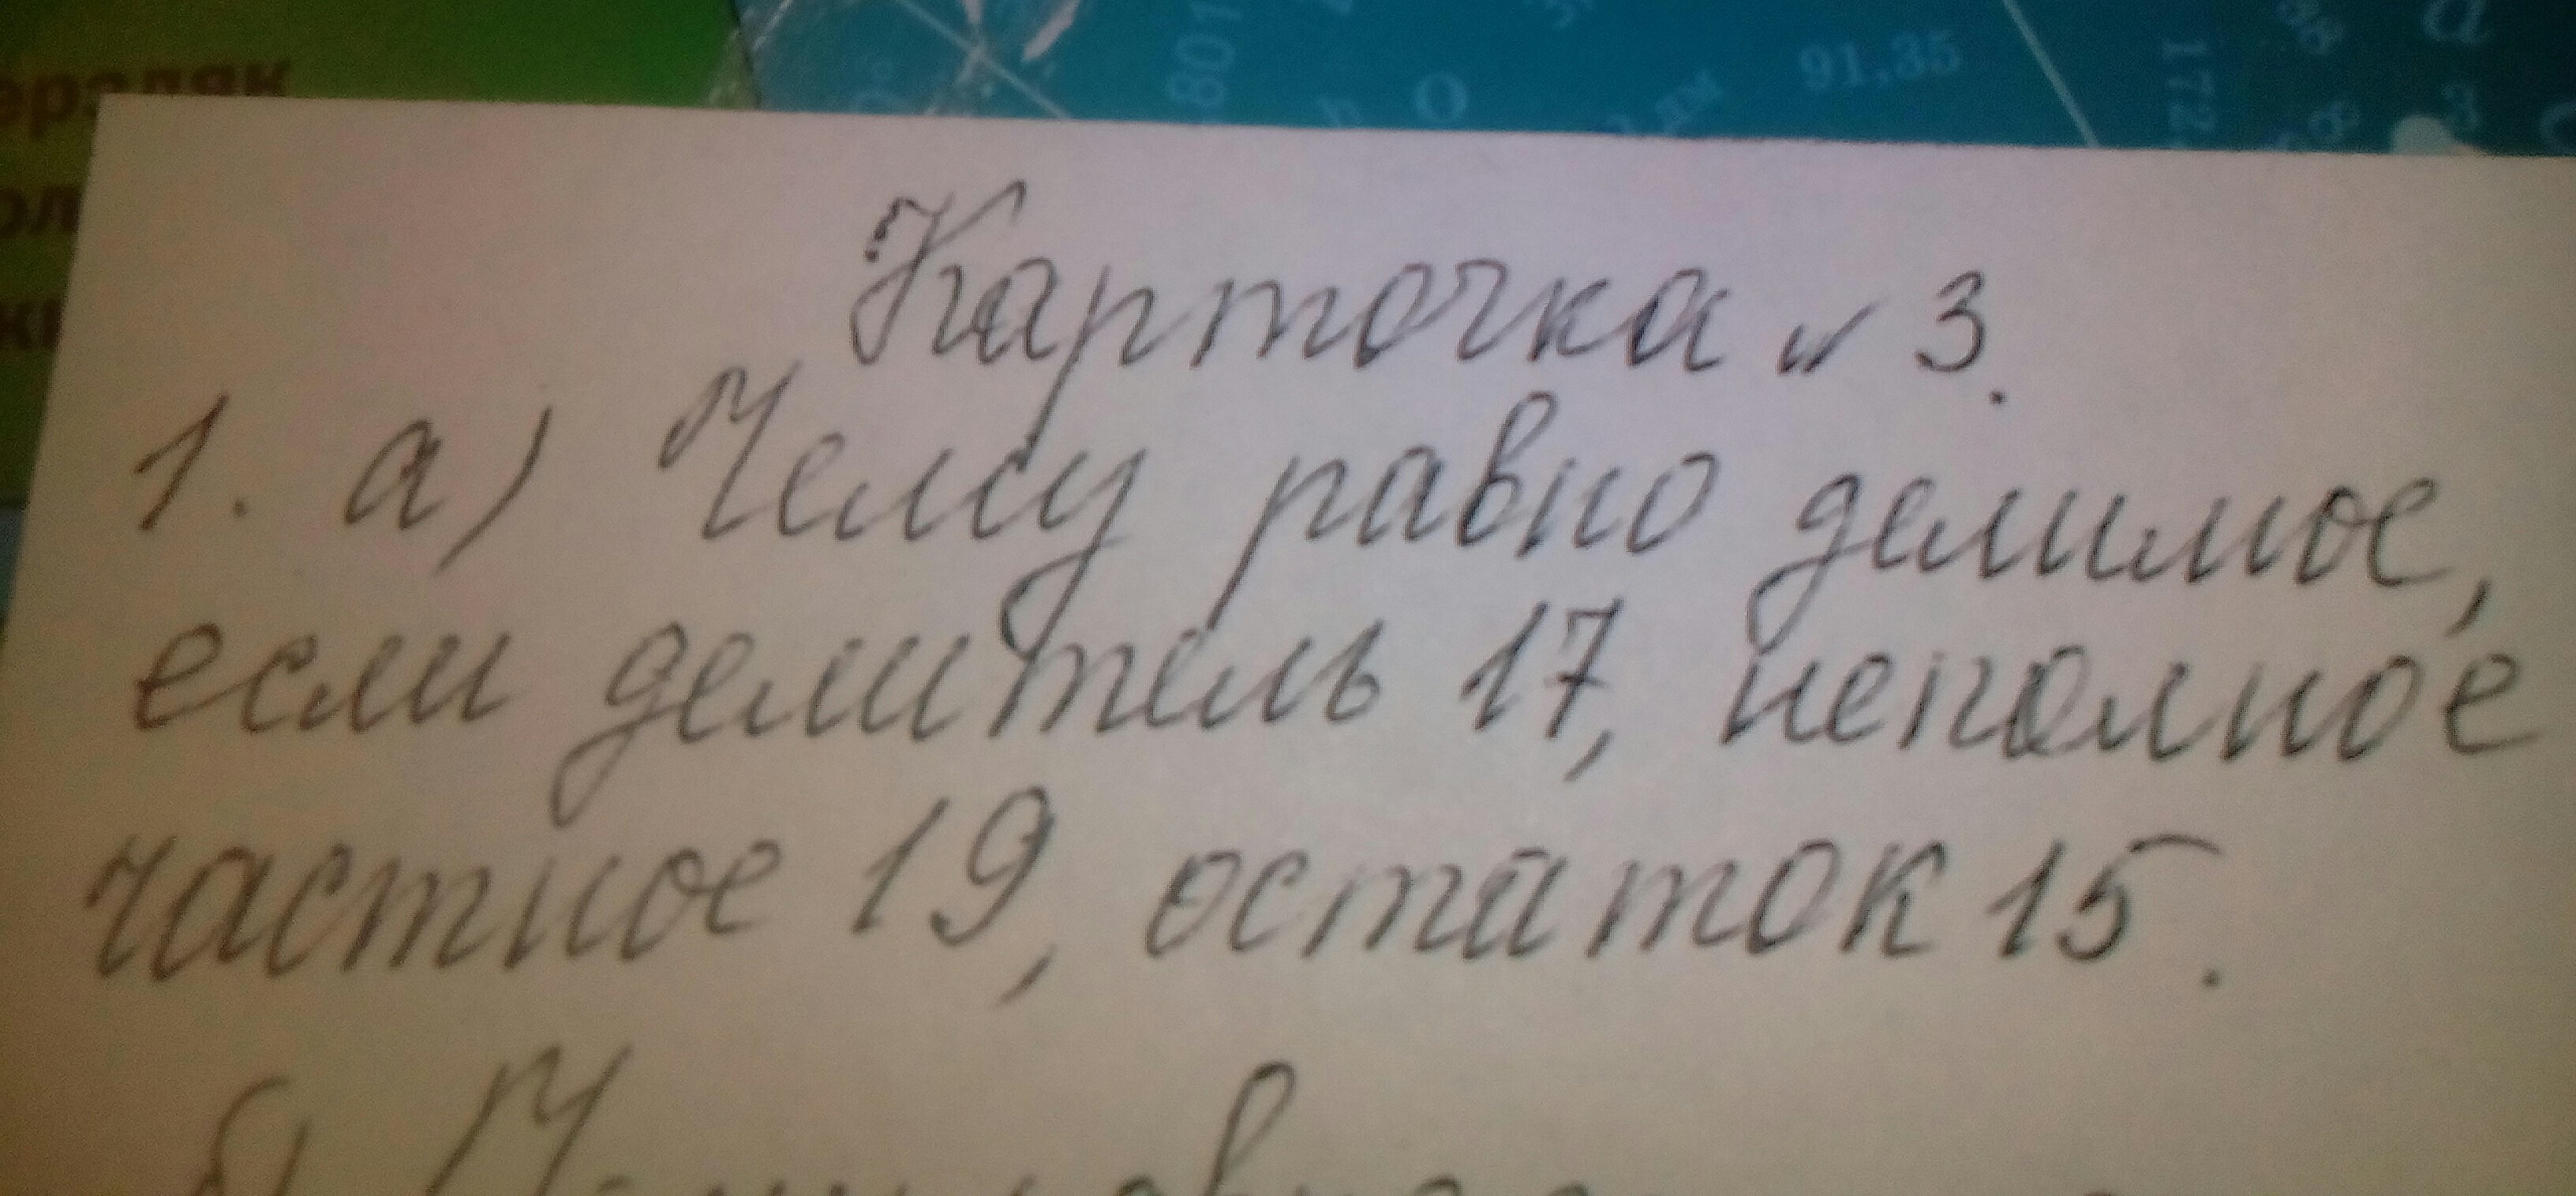 801
91,35
172
Карточка № 3.
1. а) Чему равно делимое,
если делитель 17, неполное
частное 19, остаток 15.
б) Чему равно